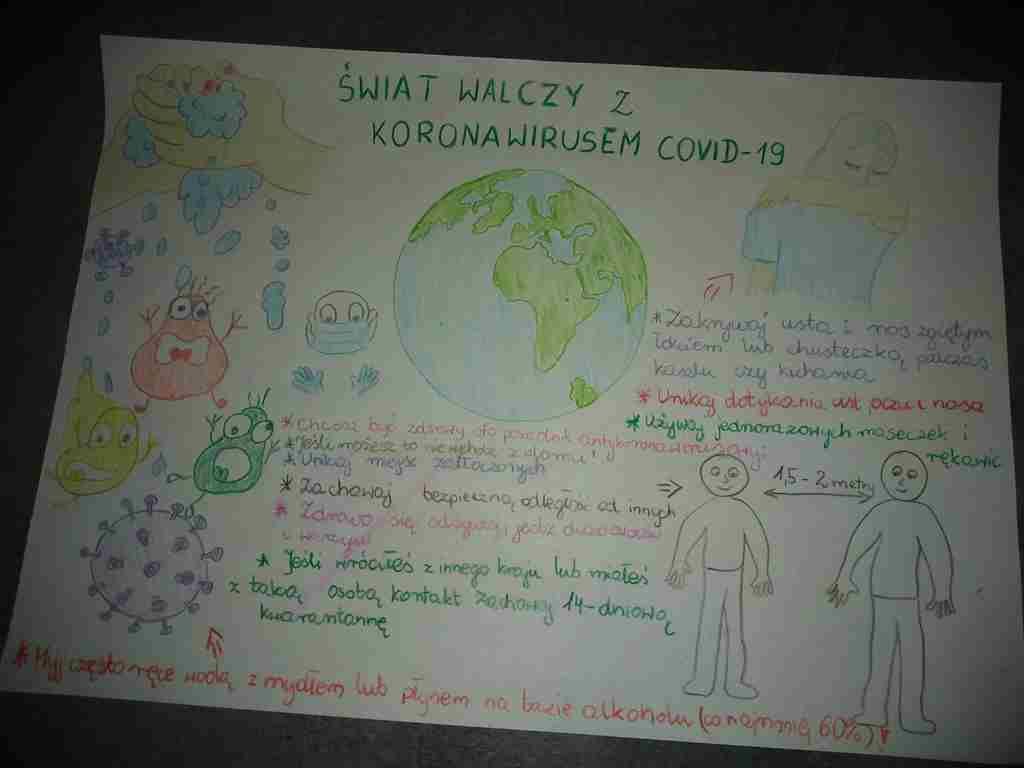 ŚWIAT WALCZY Z
KORONAWIRUSEM COVID-19
* Zakrywaj usta i nos zgiętym
łokciem lub chusteczką podczas
kaszlu czy kichania
* Unikaj dotykania ust oczu i nosa
* Używaj jednorazowych maseczek i
rękawic
* Chcesz być zdrowy oto poradnik antykoronawirusowy:
* Jeśli możesz to nie wychodź z domu!
* Unikaj miejsc zatłoczonych
* Zachowaj bezpieczną odległość od innych
1,5 - 2 metry
* Zdrowo się odżywiaj, jedz dużo owoców
i warzyw!
* Jeśli wróciłeś z innego kraju lub miałeś
z taką osobą kontakt zachowaj 14-dniową
kwarantannę
* Myj często ręce wodą z mydłem lub płynem na bazie alkoholu (co najmniej 60%)!